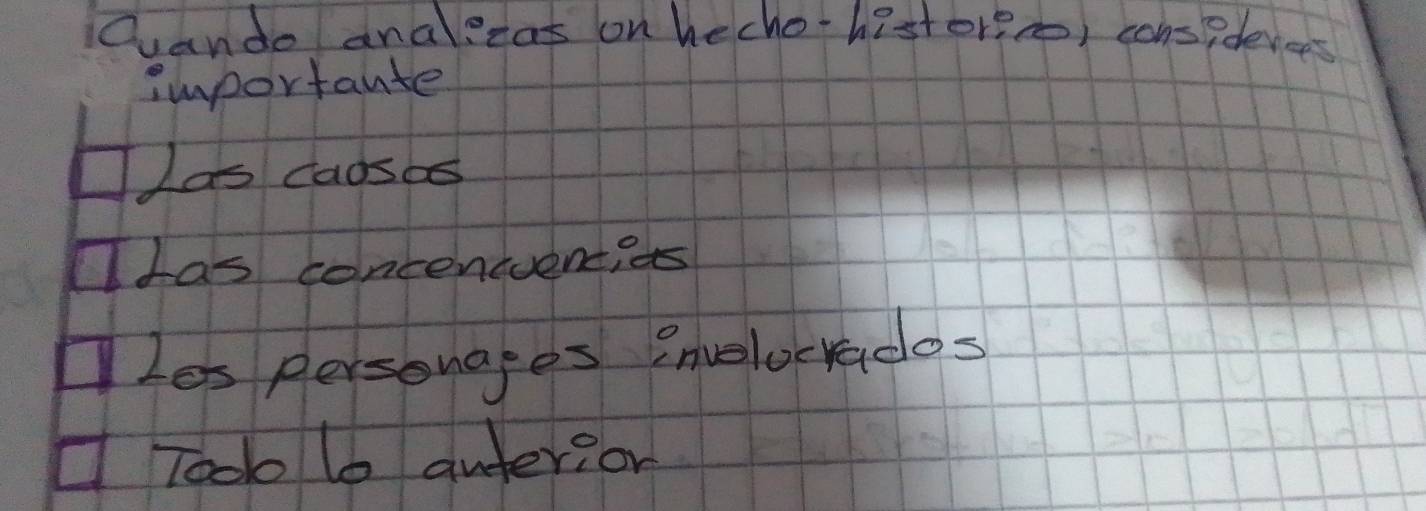 Cuando analizas un hecho-historico, consideras
importante
Las caosas
Las concencuencias
Los personajes involucrados
Todo lo anterior